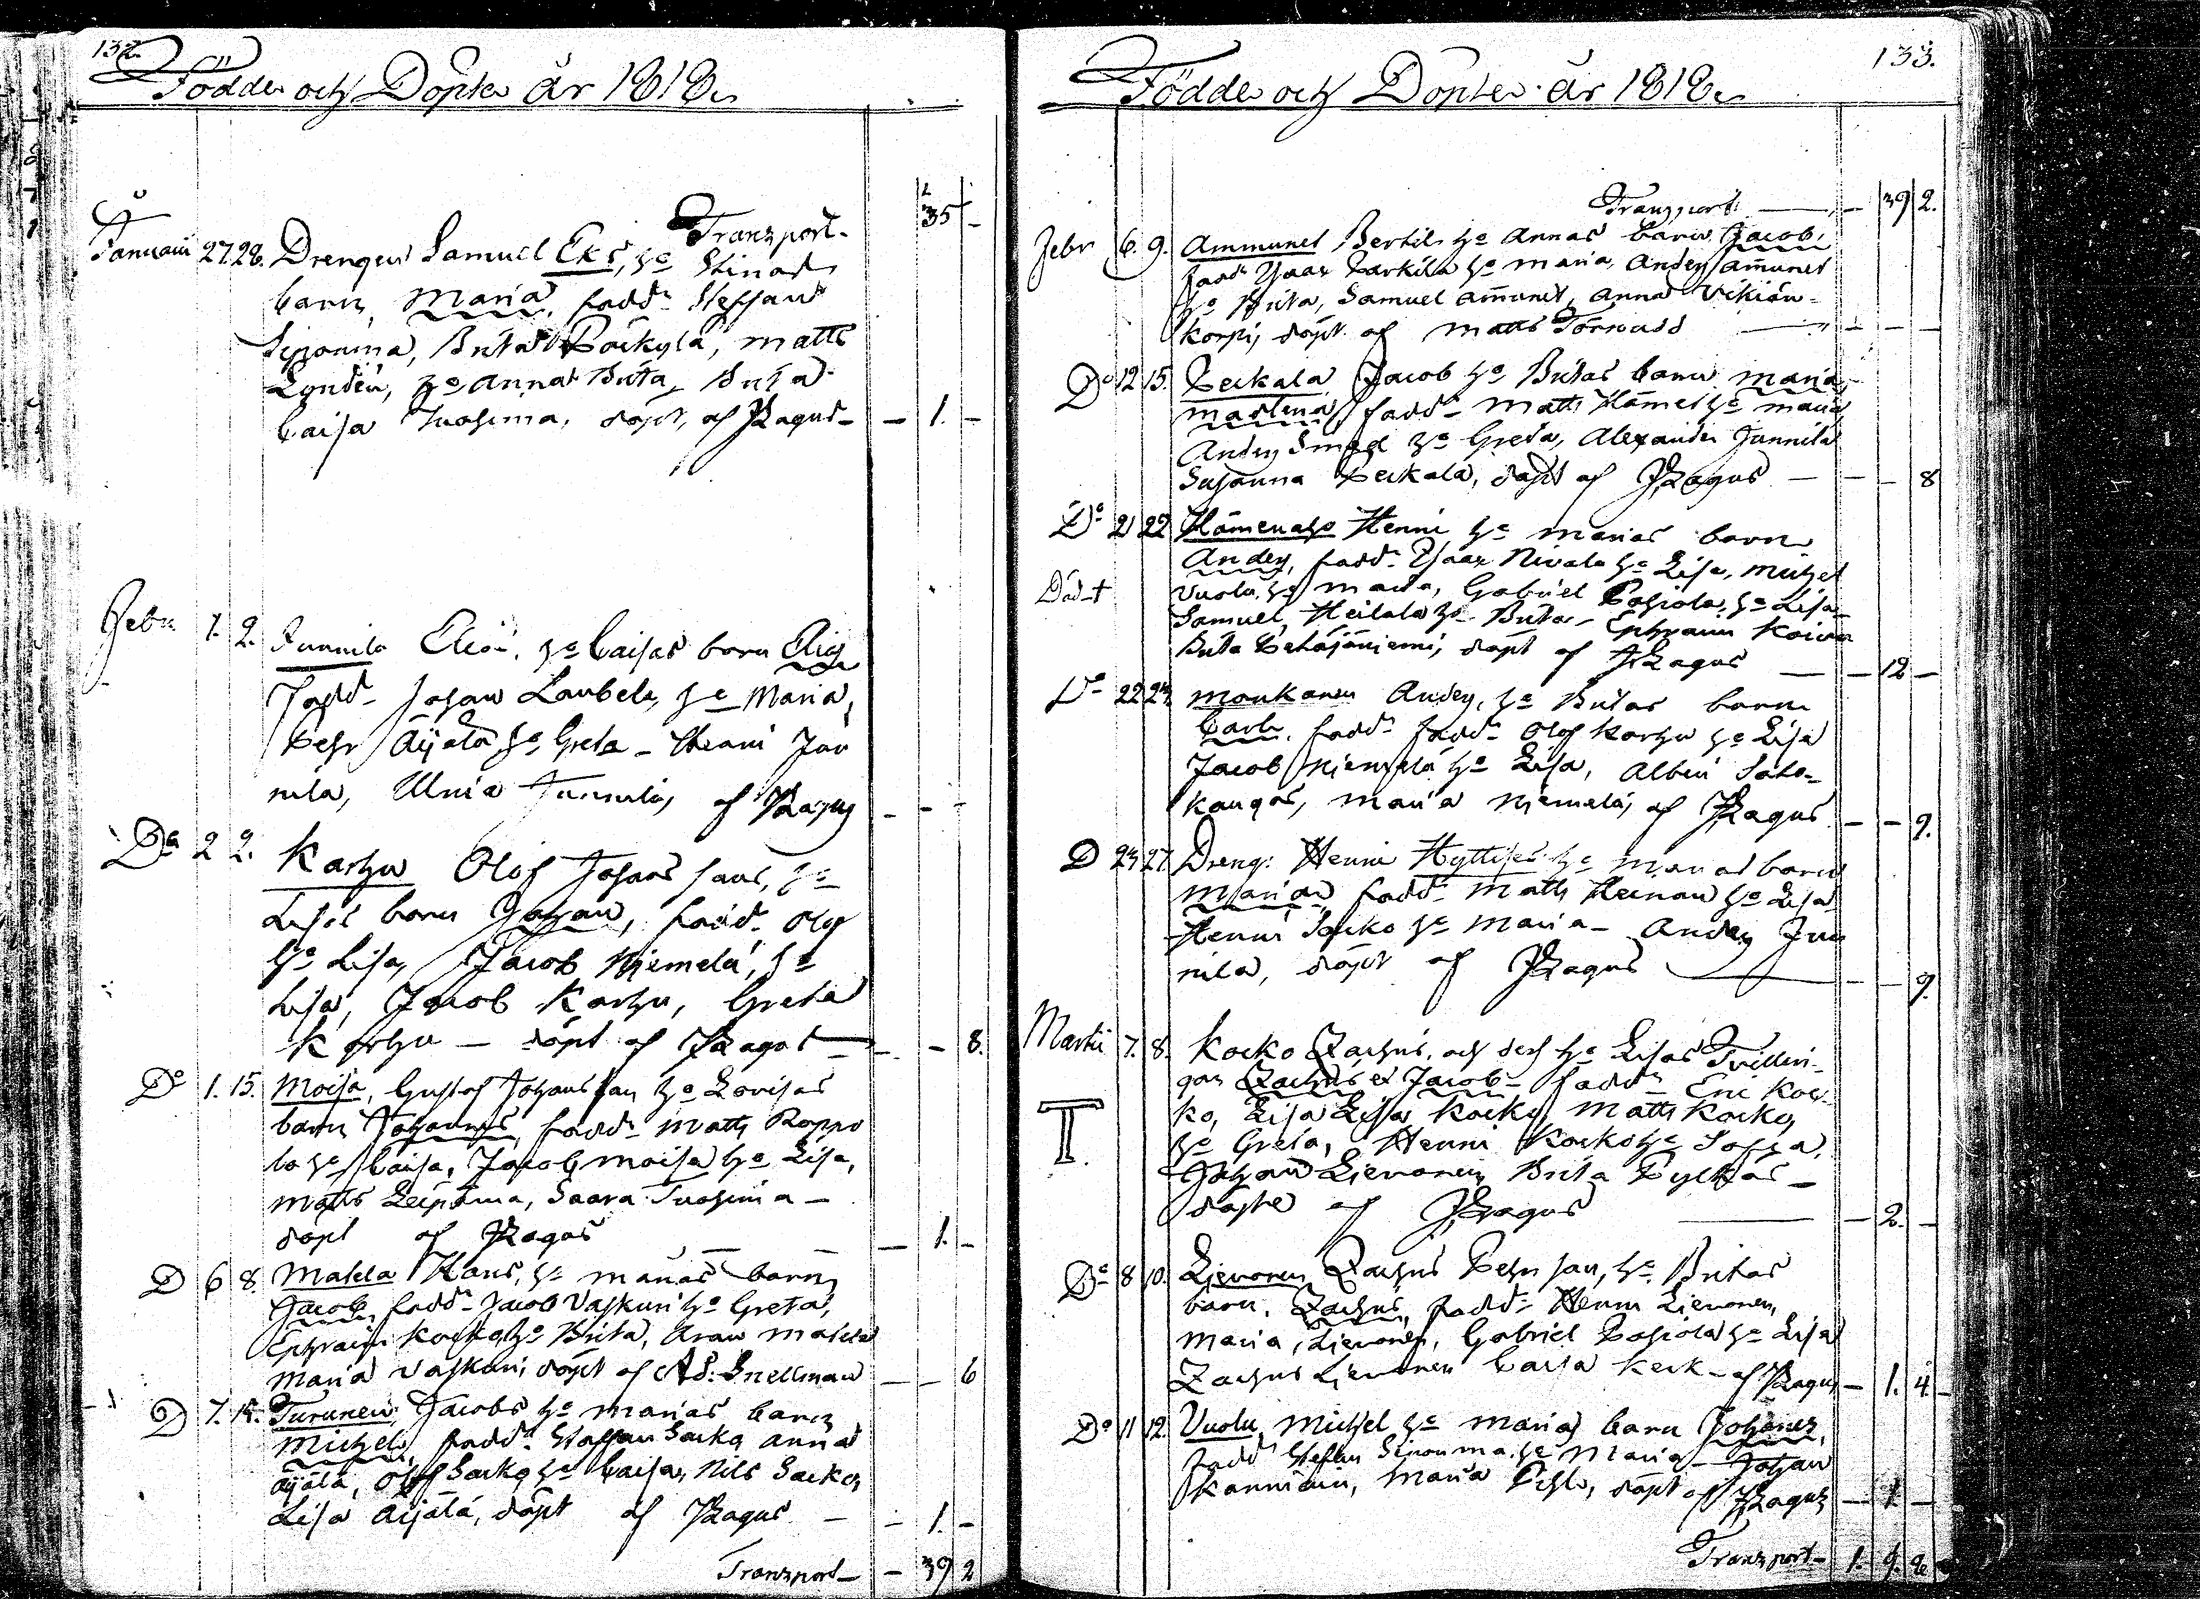 132.
Födde och Döpte år 1818.
Transport - 35 -
Januarii 27. 28. Drengen Samuel Eks, h:o Stinas
barn Maria, fadd: Steffan
Sipponina, Brita Pöckylä, Matts
Londén, h:o Anna Brita, Brita
Caisa Tuohima, döpt af JZagus - 1. -
Febr. 1. 2. Junnila Eliæ, h:o Caisas barn Elig
Fadd: Johan Laubela, h:o Maria,
Pehr Äijälä h:o Greta - Henni Jun
nila, Ulnia Junnila, af JZagus - - -
D:o 2 2. Karhu Olof Johans sons, h:o
Lisas barn Johan, fadd: Olof
h:o Lisa, Jacob Niemelä, h:o
Lisa, Jacob Karhu, Greta
Karhu - döpt af JZagus - - 8.
D:o 1. 15. Moisa, Gustaf Johansson h:o Lovisas
barn Johannes, fadd: Matts Roppo
la h:o Caisa, Jacob Moisa h:o Lisa,
Matts Leipämа, Saara Tuohima -
döpt af JZagus - 1. -
D 6 8. Matela Hans, h:o Marias barn
Jacob, fadd: Jacob Vaskuri h:o Greta,
Ephraim Kocko h:o Brita, Aram Matela
Maria Vaskuri, döpt af Ad: Snellman - - 6
D 7. 15. Turunen Jacobs h:o Marias barn
Michel, fadd: Staffan Sarko Anna
Äijälä, Olof Sarko h:o Caisa, Nils Sarko,
Lisa Äijälä, döpt af JZagus - - 1. -
Transport - - 39 2
133.
Födde och Döpte år 1818.
Transport - - 39 2.
Febr 6. 9. Ammunet Bertils h:o Annas barn Jacob,
fadd: Isaac Parkila h:o Maria, Anders Amunet
h:o Brita, Samuel Amunet, Anna Vikiän-
korpi, döpt af Matts Törnudd - - -
D:o 12 15. Peckala Jacob h:o Britas barn Maria
Martina fadd: Matts Hamel h:o Maria
Anders Smed h:o Greta, Alexander Junnila
Susanna Peckala, döpt af JZagus - - - 8
D:o 21 22 Hämenaho Henni h:o Marias barn
Anders, fadd: Isaac Nivala h:o Lisa, Michel
Död † Vuolu, h:o Maria, Gabriel Pohiola, h:o Lisa
Samuel Heilala h:o Brita - Ephraim Koivu
Brita Petäjäniemi, döpt af JZagus - - 12 -
D:o 22 24. Monkanen Anders, h:o Britas barn
Carl, fadd: fadd: Olof Karhu h:o Lisa
Jacob Niemelä h:o Lisa, Albin Salo-
kangas, Maria Niemelä, af JZagus - - 9.
D 24 27. Dreng: Henni Hyttises h:o Marias barn
Maria fadd: Matts Heinau h:o Lisa
Henni Sarko h:o Maria - Anders Jun
nila, döpt af JZagus - - 9.
Martii 7. 8. Kocko Zachris, och dess h:o Lisas Tvillin-
gar Zachris et Jacob - fadd: Eric Koc-
ko, Lisa Lisa Kocko, Matts Kocko,
T. h:o Greta, Henni Kocko h:o Sophia,
Johan Lievonen, Brita Pylkäs -
döpte af JZagus - 2. -
D:o 8 10. Lievonen Zachris Pehrsson, h:o Britas
barn, Zachris, fadd: Henni Lievonen,
Maria Lievonen, Gabriel Pohiola h:o Lisa
Zachris Lievonen Caisa Keck - af JZagus - 1. 4.
D:o 11 12. Vuolu Michel h:o Marias barn Johannes,
fadd: Steffan Sinouma h:o Maria - Johan
Kanniain, Maria Pehl, döpt af JZagus - 1 -
Transport - 1. 9. 2